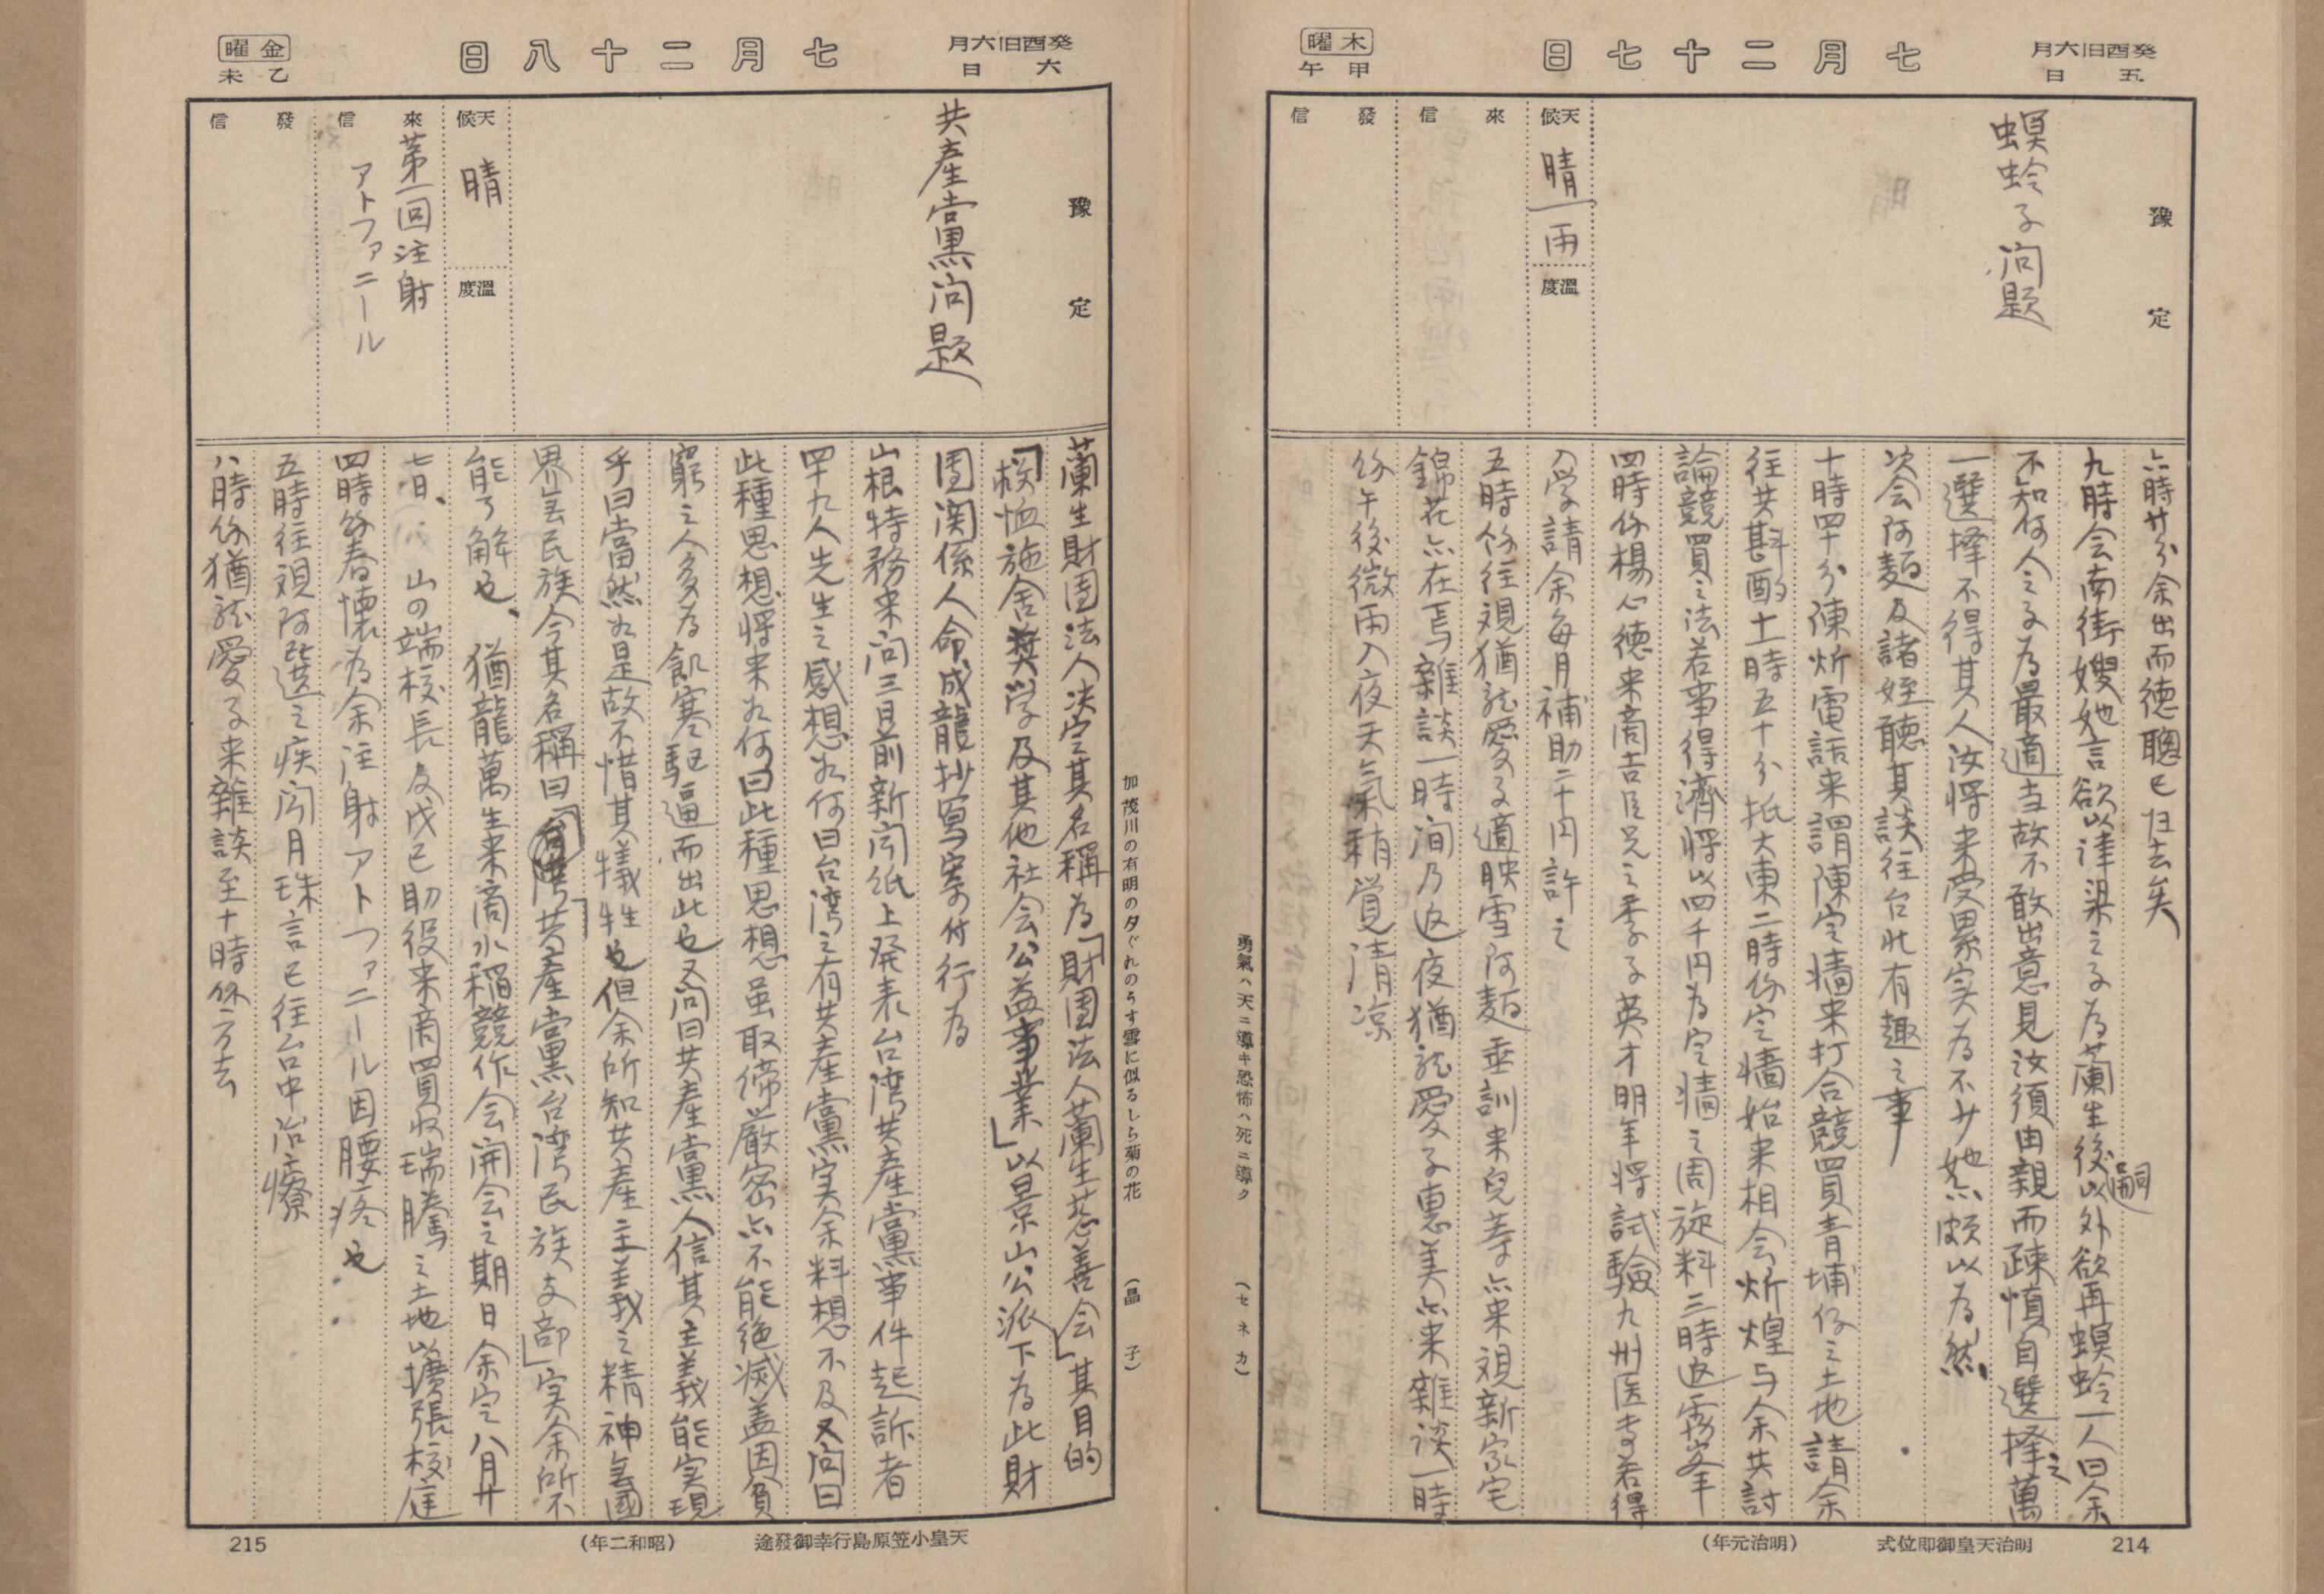 癸酉旧六月
五日
七月二十七日
木曜
甲午
豫定
螟蛉子问題
天候
晴 雨
溫度
來信
發信
六時廿分余出而德聰已归去矣
九時会南街嫂她言欲以津梁之子為蘭生後嗣以外欲再螟蛉一人曰余
不知何人之子為最適当故不敢出意見汝須由親而疎慎自選择之萬
一選择不得其人汝将来受累实為不少她点頗以為然
次会阿麵及諸姪聽其談往台北有趣之事
十時四十分陳炘電話来謂陳定墻来打合競買青埔仔之土地請余
往共斟酌十一時五十分抵大東二時你定墻始来相会炘煌与余共討
論競買之法若事得濟将以四千円為定墻之周旋料三時返霧峯
四時你楊心德来商吉臣兄之季子英才明年将試驗九州医専若得
入学請余每月補助二十円許之
五時你往視猶龍愛子適映雪阿麵垂訓来兒等点来視新家宅
錦花点在焉雜談一時间乃返夜猶龍愛子惠美点来雜谈一時
你午後微雨入夜天氣稍覚清凉
勇氣ハ天ニ導キ恐怖ハ死ニ導ク
(セネカ)
明治天皇御即位式 (明治元年)
214
癸酉旧六月
六日
七月二十八日
金曜
乙未
豫定
共產黨问題
天候
晴
溫度
來信
第一回注射
アトファニール
發信
蘭生財团法人决定其名稱為「財团法人蘭生慈善会」其目的
「救恤施舍奬学及其他社会公益事業」以景山公派下為此財
团関係人命成龍抄寫案付行為
山根特務来问三日前新闻纸上発表台湾共產黨事件起訴者
四十九人先生之感想如何曰台湾之有共產黨实余料想不及又问曰
此種思想将来如何曰此種思想虽取締嚴密点不能绝滅盖因貧
窮之人多為飢寒驱逼而出此也又问曰共產黨人信其主義能实現
乎曰當然如是故不惜其犠牲也但余所知共產主義之精神無國
界無民族今其名稱曰「台湾共產黨台湾民族支部」实余所不
能了解也、 猶龍萬生来商水稲競作会開会之期日余定八月廿
七日、 山の端校長及戊己助役来商買收瑞騰之土地以擴張校庭
四時你春懷為余注射アトファニール因腰疼也
五時往視阿選之疾闻月珠言已往台中治療
八時你猶龍愛子来雜談至十時你方去
加茂川の有明の夕ぐれのうす雪に似るしら菊の花
(晶子)
天皇小笠原島行幸御發途 (昭和二年)
215